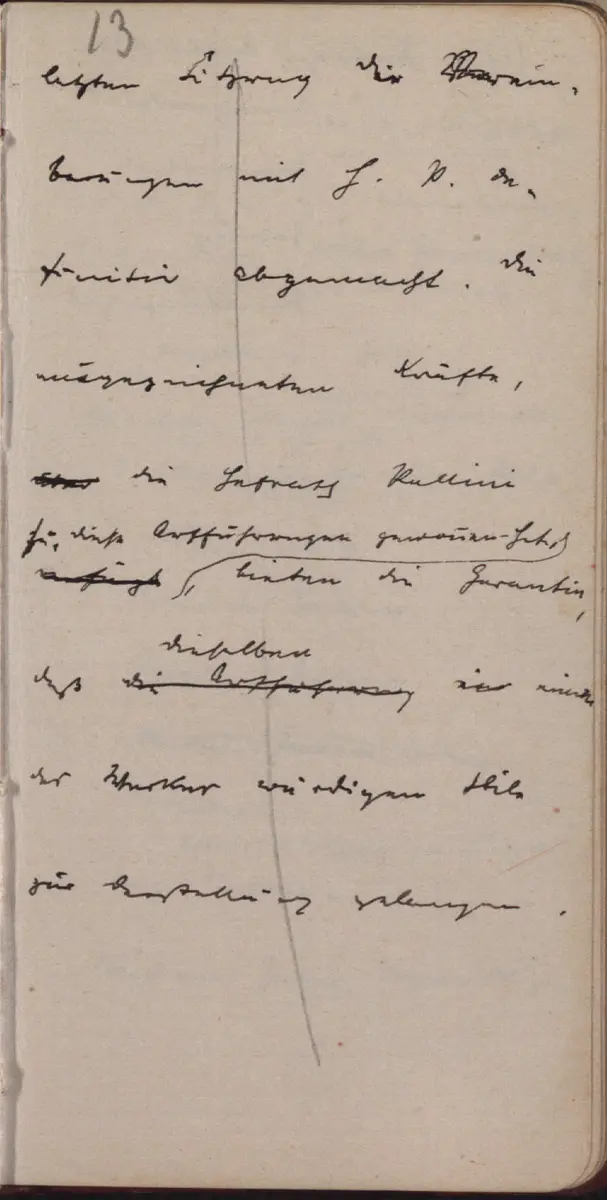 13
letzten Sitzung die Verein-
barungen mit H. P. de-
finitiv abgemacht. Die
ausgezeichneten Kräfte,
die Hofrath Pollini
für diese Aufführungen gewonnen hat,
verfügt, bieten die Garantie,
dieselben
daß die Aufführung in einem
des Werkes würdigen Stile
zur Darstellung gelangen.